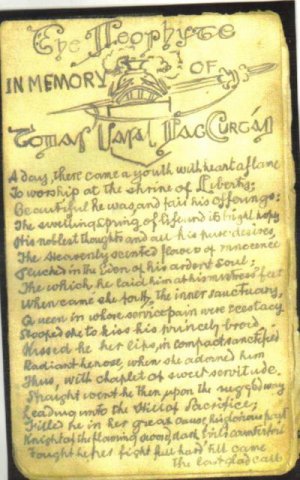 The Neophyte
IN MEMORY OF
Tomás MacCurtáin
A day, there came a youth with heart aflame
To worship at the shrine of Liberty;
Beautiful he was, and fair his offerings:
The swelling spring of life and its bright hopes
His noblest thoughts and all his pure desires,
The Heavenly scented flower of innocence
in the Eden of his ardent soul;
The which, he laid him at his mistress' feet
When came she forth, the inner sanctuary,
Queen in whose service pain were ecstacy
Stooped she to kiss his princely brow
Kissed he her lips, in compact sanctified
Radiant he rose, when she adorned him
Thus, with chaplet of sweet servitude,
Straight went he then upon the rugged way
Leading unto the Hill of Sacrifice;
Filled he in her great cause his glorious part
Knight of the flaming sword, dark
Fought he his fight full hard till came
The last glad call